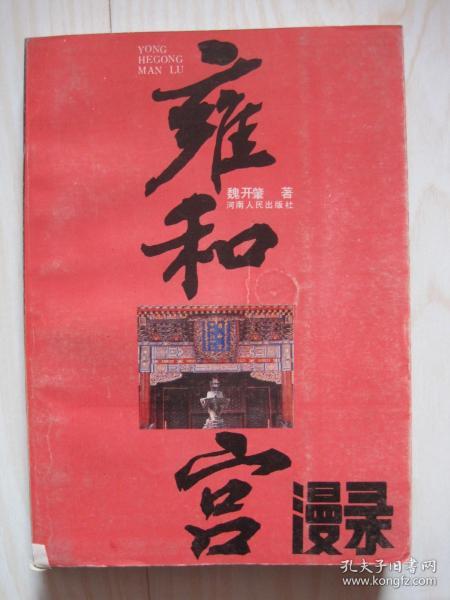 YONG
HEGONG
MAN LU
雍和宫
漫录
魏开肇 著
河南人民出版社
孔夫子旧书网
www.kongfz.com